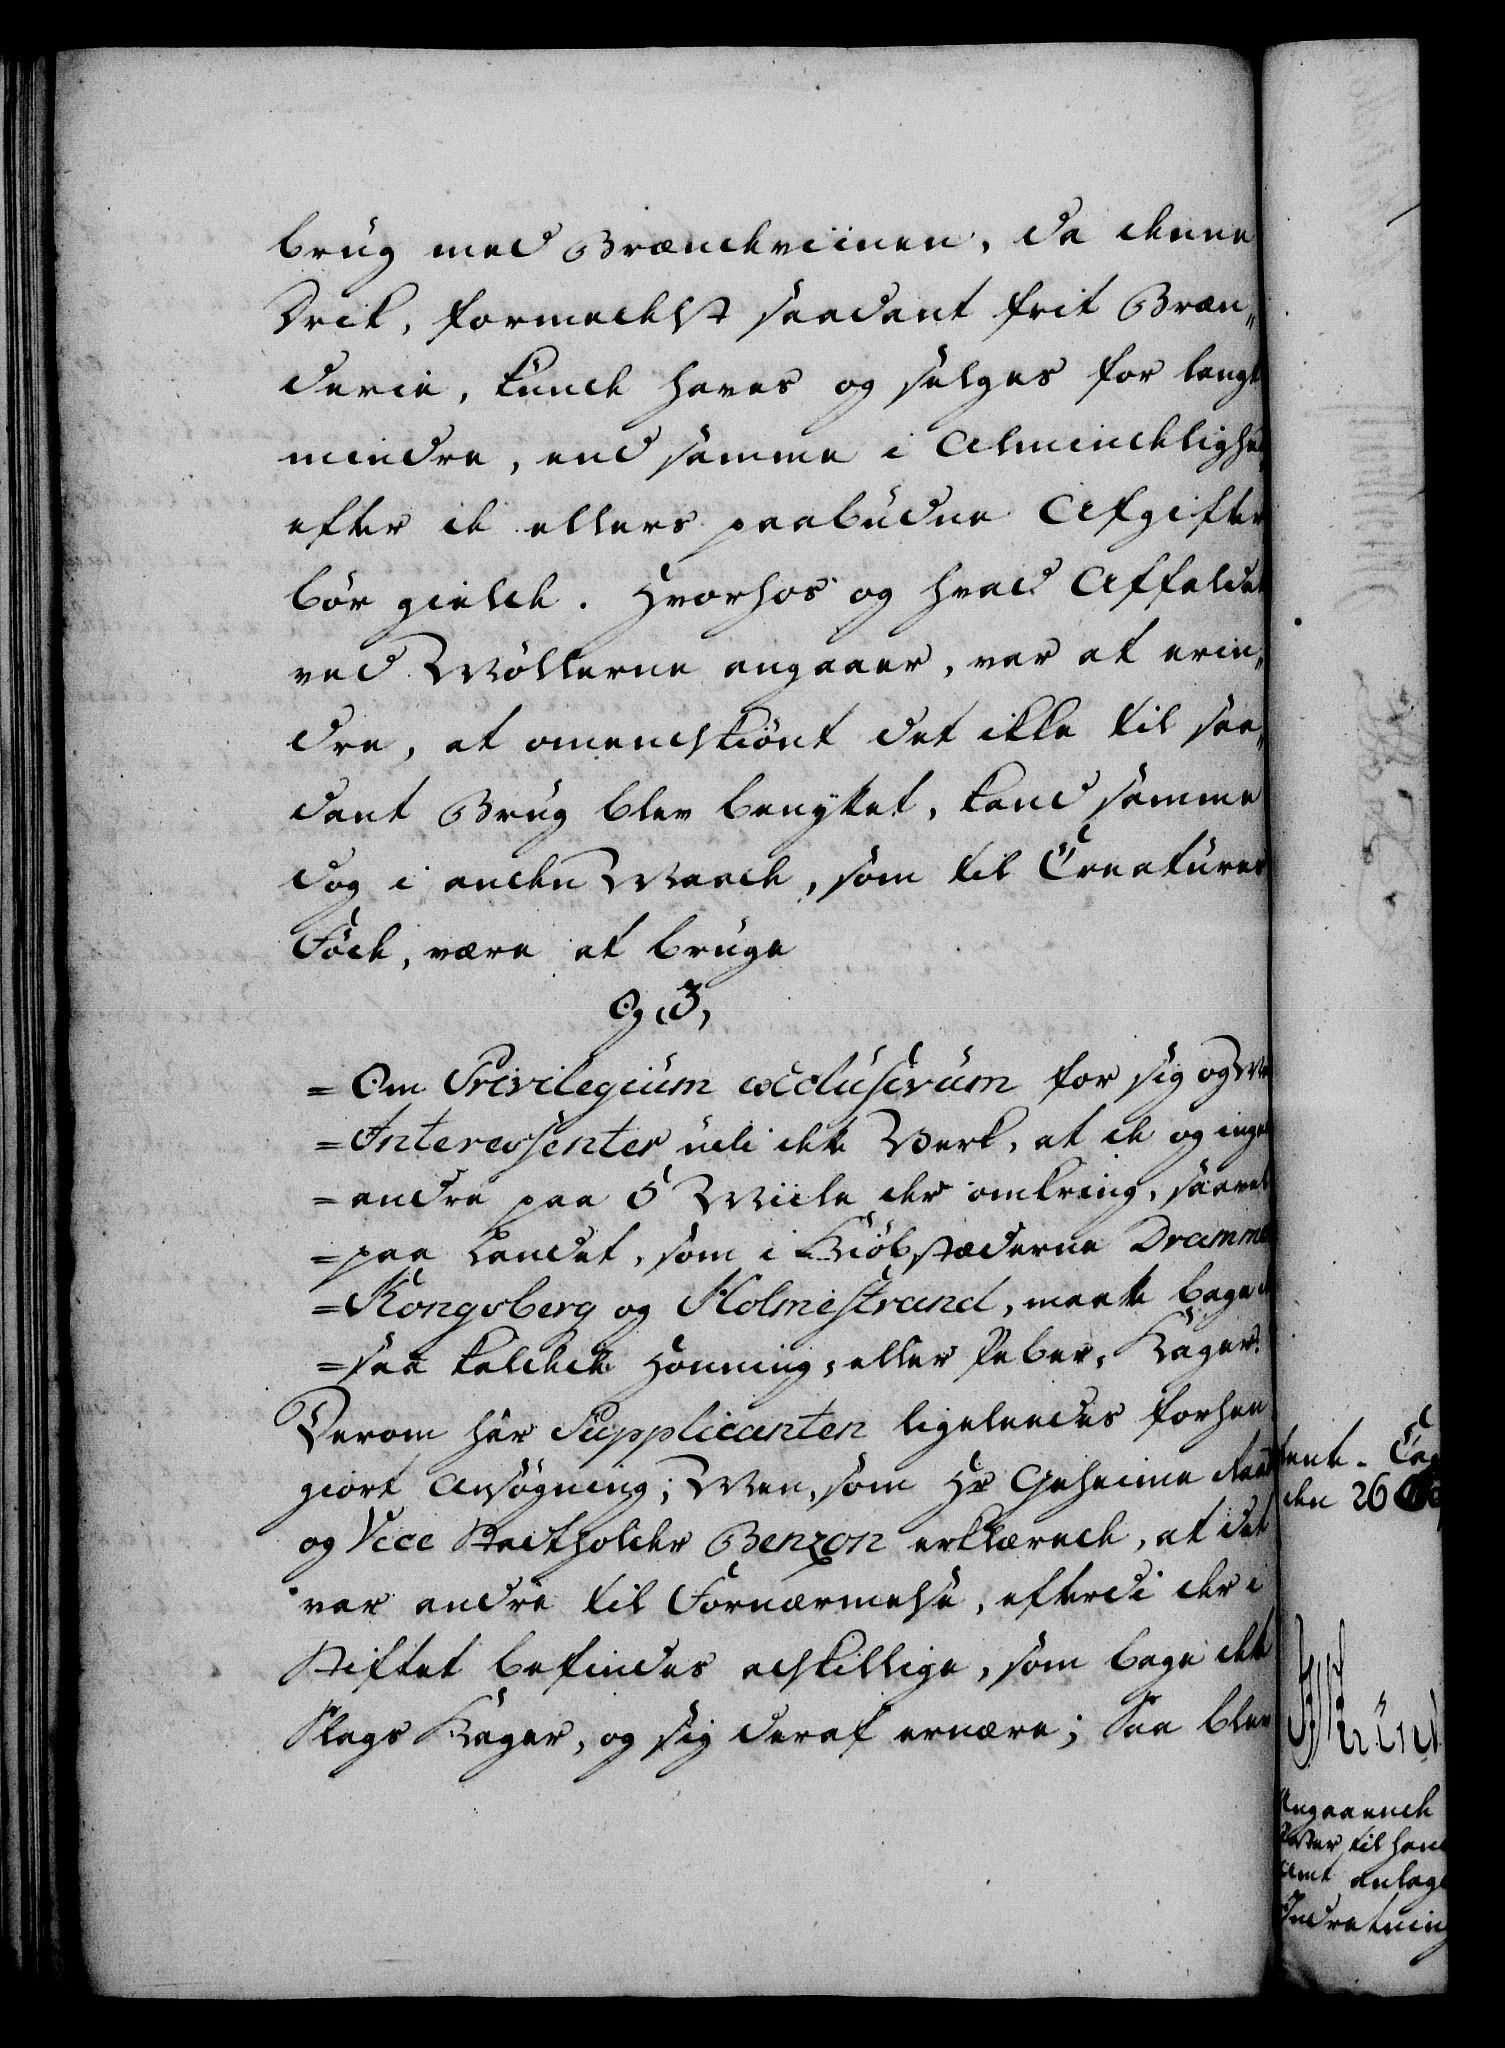 brug med Brændeviinen, da denne
Drik, formedelst saadant frit Bræn„
derie, kunde haves og sælges for langt
mindre, end samme i Almindelighed
efter de ellers paabudne Afgifter
bör gielde. Hvorhos og hvad Affaldet
ved Møllerne angaaer, var at erin„
dre, at omendskiönt det ikke til saa„
dant Brug blev benyttet, kand samme
dog i anden Maade, som til Creaturer
Föde, være at bruge
Og 3,
= Om Privilegium exclusivum for sig og
= Interessenter udi dette Verk, at de og ingen
= andre paa 5 Miile der omkring, saavel
= paa Landet, som i Kiöbstæderne Drammen
= Kongsberg og Holmestrand, maatte bage de
= saa kaldede Honning, eller Peber, Kager.
Derom har Supplicanten ligeleedes forhen
giort Ansögning; Men, som Hr Geheime Raad
og Vice Statholder Benzon erklærede, at det
var andre til Fornærmelse, efterdi der i
Stiftet befindes adskillige, som bage dette
Slags Kager, og sig deraf ernære; Saa blev
den 26
Angaaende
til hans
Amt anlagt
Indretning